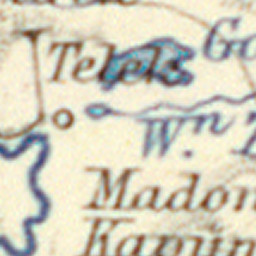 Telek
Go
Wn.
Madon
Kapün